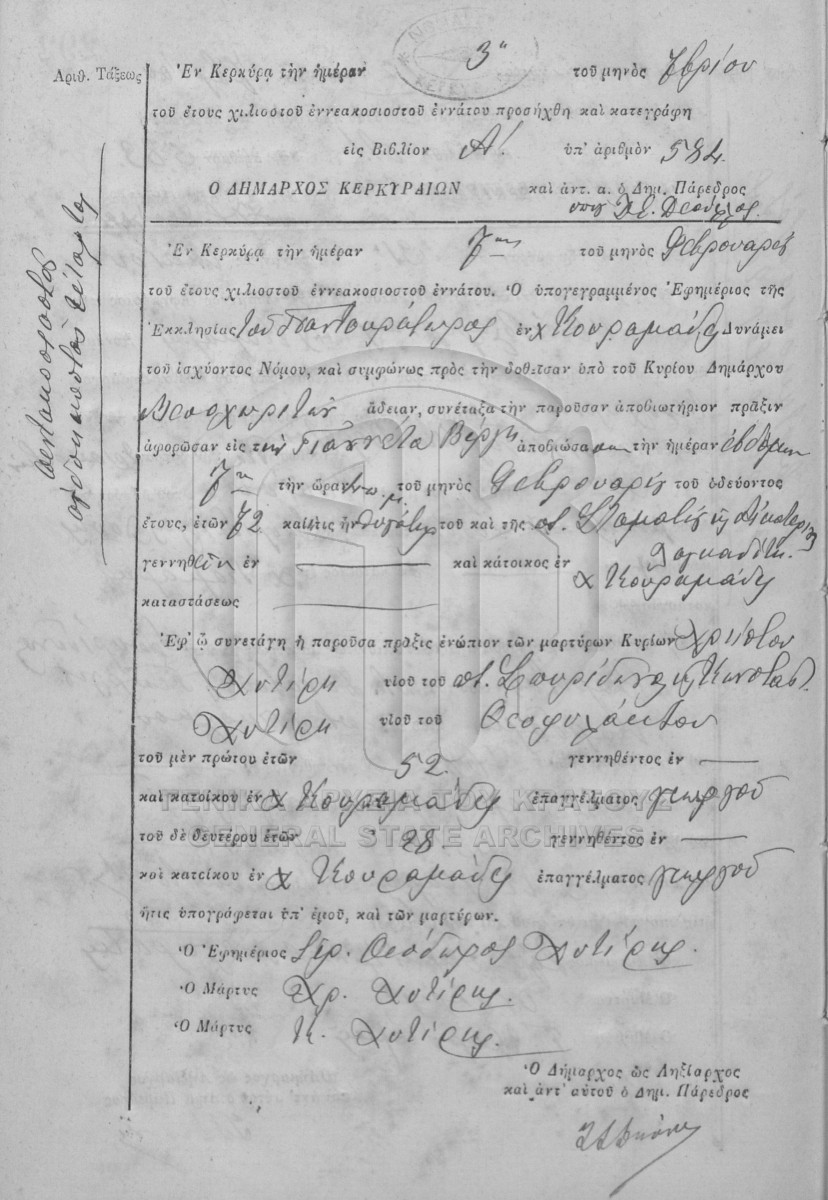 Ἀριθ. Τάξεως
Ἐν Κερκύρᾳ τὴν ἡμέραν 3ῃ τοῦ μηνὸς 7βρίου
τοῦ ἔτους χιλιοστοῦ ἐννεακοσιοστοῦ ἐννάτου προσήχθη καὶ κατεγράφη
εἰς Βιβλίον Α'. ὑπ' ἀριθμὸν 584.
Ο ΔΗΜΑΡΧΟΣ ΚΕΡΚΥΡΑΙΩΝ καὶ ἀντ. α. ὁ Δημ. Πάρεδρος
πεντακοσιοστὸς ὀγδοηκοστὸς τέταρτος
Ἐν Κερκύρᾳ τὴν ἡμέραν 7ην τοῦ μηνὸς Φεβρουαρίου
τοῦ ἔτους χιλιοστοῦ ἐννεακοσιοστοῦ ἐννάτου. Ὁ ὑπογεγραμμένος Ἐφημέριος τῆς
Ἐκκλησίας τοῦ Παντοκράτωρος ἐν χ Κουραμάδες Δυνάμει
τοῦ ἰσχύοντος Νόμου, καὶ συμφώνως πρὸς τὴν δοθεῖσαν ὑπὸ τοῦ Κυρίου Δημάρχου
Μεσοχωριτῶν ἄδειαν, συνέταξα τὴν παροῦσαν ἀποβιωτήριον πρᾶξιν
ἀφορῶσαν εἰς τὴν Γιαννέτα Βέργη ἀποβιώσασαν τὴν ἡμέραν ἑβδόμην
7ην τὴν ὥραν μ.μ. τοῦ μηνὸς Φεβρουαρίου τοῦ ὁδεύοντος
ἔτους, ἐτῶν 72 καὶ εἰς ἦν θυγάτηρ τοῦ καὶ τῆς π. Σταματίου κ Αἰκατερίνης
γεννηθεῖσαν ἐν — καὶ κάτοικος ἐν
χ Κουραμάδες
καταστάσεως —
Ἐφ' ᾧ συνετάγη ἡ παροῦσα πρᾶξις ἐνώπιον τῶν μαρτύρων Κυρίων Χρήστου
Χυτίρη υἱοῦ τοῦ π. Σπυρίδωνος κ Κωνσταντ.
Χυτίρη υἱοῦ τοῦ Θεοφυλάκτου
τοῦ μὲν πρώτου ἐτῶν 52 γεννηθέντος ἐν —
καὶ κατοίκου ἐν χ Κουραμάδες ἐπαγγέλματος γεωργοῦ
τοῦ δὲ δευτέρου ἐτῶν 28 γεννηθέντος ἐν —
καὶ κατοίκου ἐν χ Κουραμάδες ἐπαγγέλματος γεωργοῦ
ἥτις ὑπογράφεται ὑπ' ἐμοῦ, καὶ τῶν μαρτύρων.
Ὁ Ἐφημέριος Ἱερ. Θεόδωρος Χυτίρης.
Ὁ Μάρτυς Χρ. Χυτίρης.
Ὁ Μάρτυς Κ. Χυτίρης.
Ὁ Δήμαρχος ὡς Ληξίαρχος
καὶ ἀντ' αὐτοῦ ὁ Δημ. Πάρεδρος
ΓΕΝΙΚΑ ΑΡΧΕΙΑ ΤΟΥ ΚΡΑΤΟΥΣ
GENERAL STATE ARCHIVES